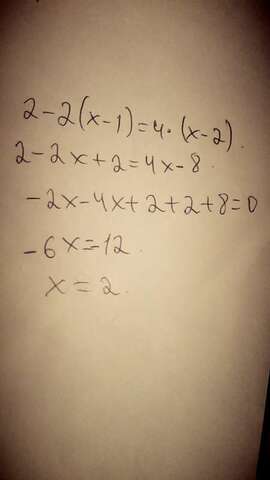 2-2(x-1)=4·(x-2).
2-2x+2=4x-8.
-2x-4x+2+2+8=0
-6x=12.
x=2.